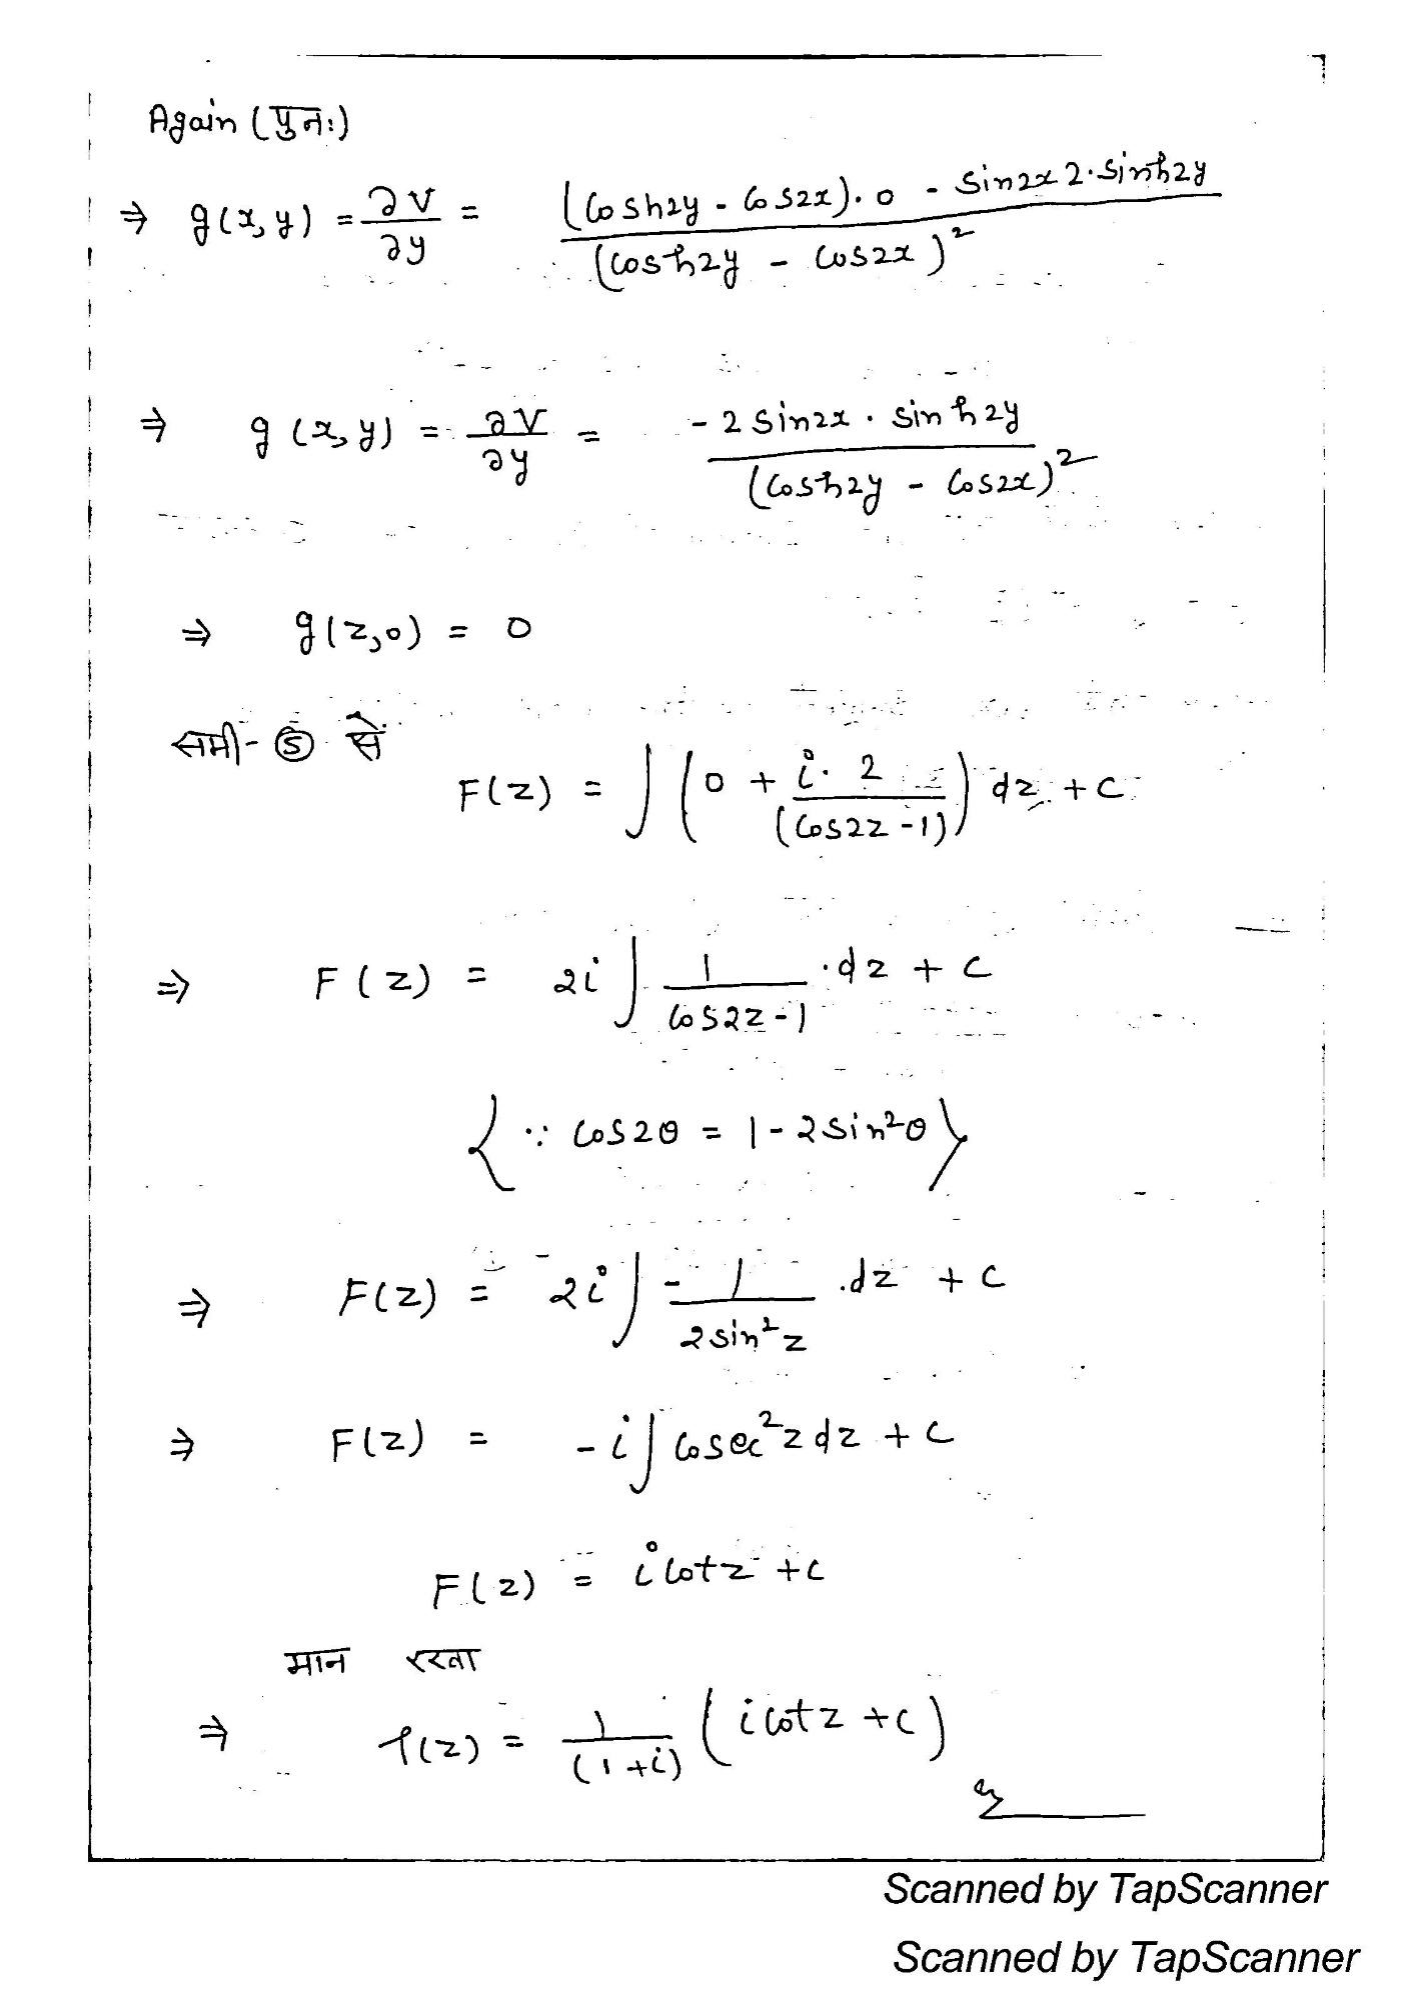 Again (पुनः)
⇒ g(x, y) = ∂V/∂y = ((cosh2y - cos2x).0 - sin2x 2.sinh2y)/(cosh2y - cos2x)²
⇒ g(x, y) = ∂V/∂y = (-2 sin2x . sinh2y)/(cosh2y - cos2x)²
⇒ g(z,0) = 0
समी- ⑤ से
F(z) = ∫(0 + i.2/(cos2z -1)) dz + c
⇒ F(z) = 2i ∫ 1/(cos2z-1) .dz + c
{∵ cos2θ = 1-2sin²θ}
⇒ F(z) = 2i ∫ -1/(2sin²z) .dz + c
⇒ F(z) = -i∫cosec²z dz + c
F(z) = i cotz + c
मान रखा
⇒ f(z) = 1/(1+i) (i cotz + c)
Scanned by TapScanner
Scanned by TapScanner